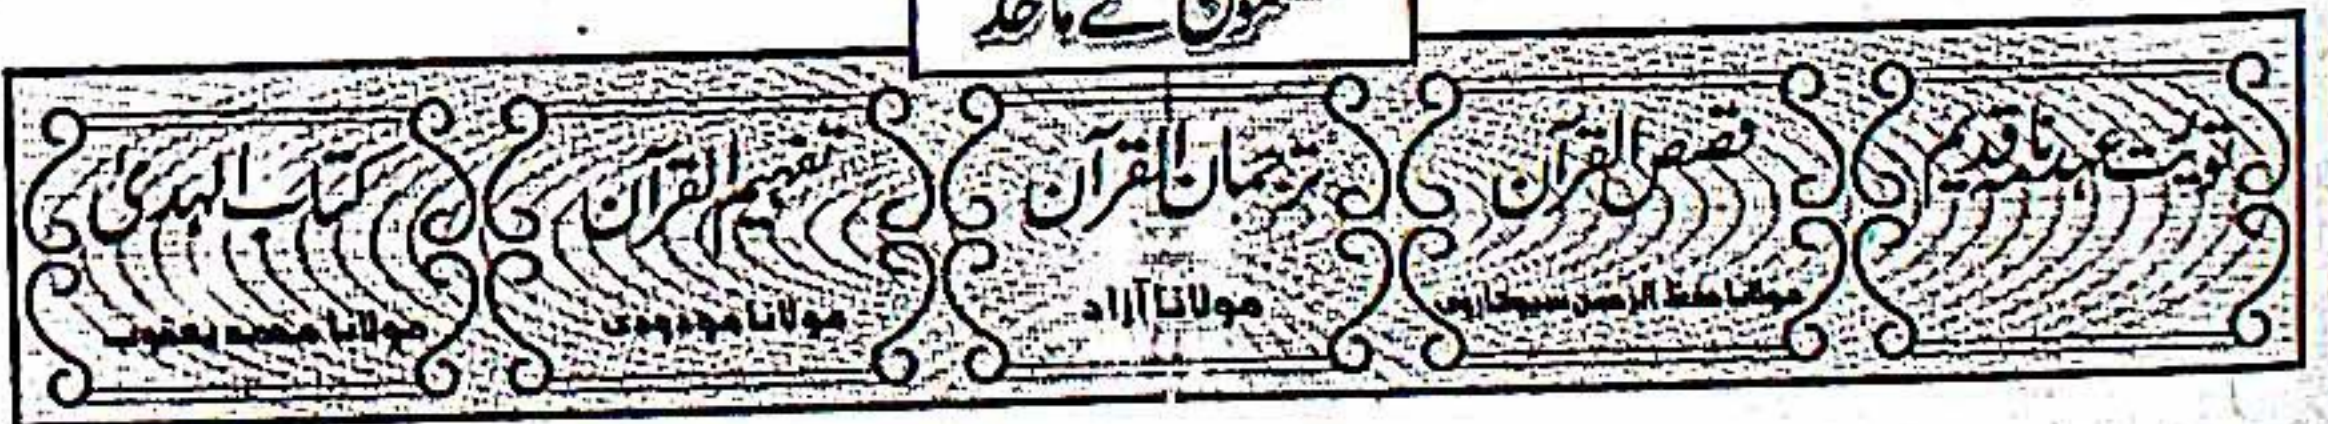 مضمون کے ماخذ
توریت عہد نامہ قدیم
قصص القرآن
مولانا حفظ الرحمن سیوہاروی
ترجمان القرآن
مولانا آزاد
تفہیم القرآن
مولانا مودودی
کتاب الہدیٰ
مولانا محمد یعقوب